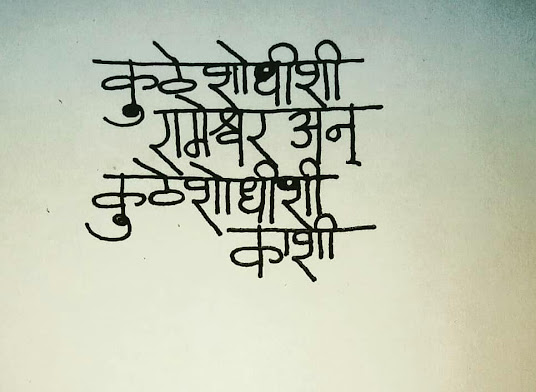 कुठे शोधीशी
रामेश्वर अन्
कुठे शोधीशी
काशी